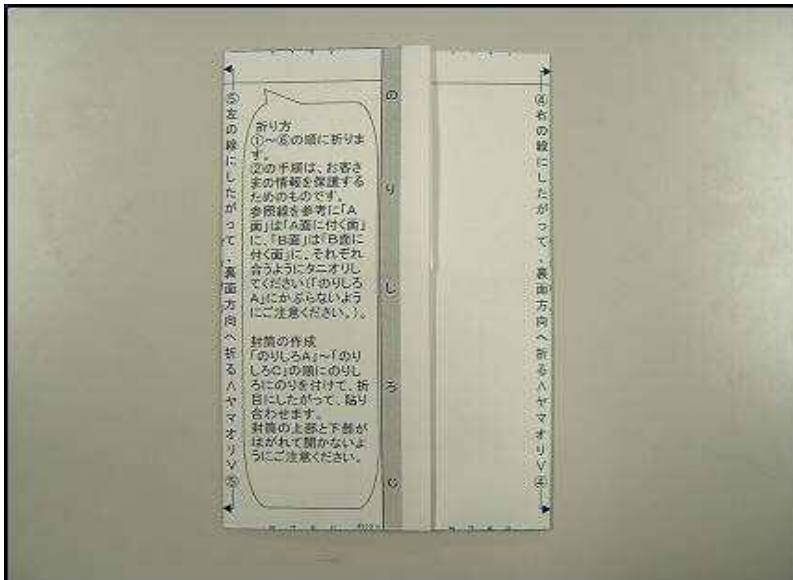 ⑤左の線にしたがって、裏面方向へ折る<ヤマオリ>⑤
折り方
①～⑥の順に折りま
す。
②の手順は、お客さ
まの情報を保護する
ためのものです。
参照線を参考に「A
面」は「A面に付く面」
に、「B面」は「B面に
付く面」に、それぞれ
合うようにタニオリし
てください(「のりしろ
A」にかぶらないよう
にご注意ください。)。
封筒の作成
「のりしろA」～「のり
しろC」の順にのりし
ろにのりを付けて、折
目にしたがって、貼り
合わせます。
封筒の上部と下部が
はがれて開かないよ
うにご注意ください。
のりしろC
④右の線にしたがって、裏面方向へ折る<ヤマオリ>④